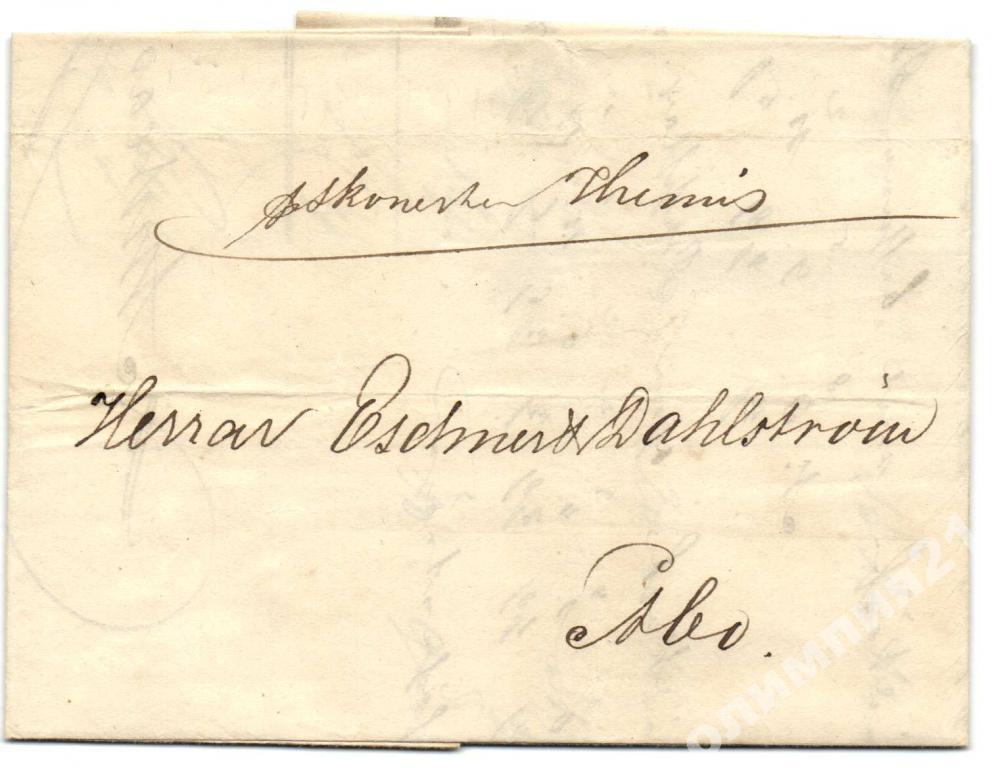 p Skonerten Themis
Herrar Eschner & Dahlström
Åbo.
олимпия21